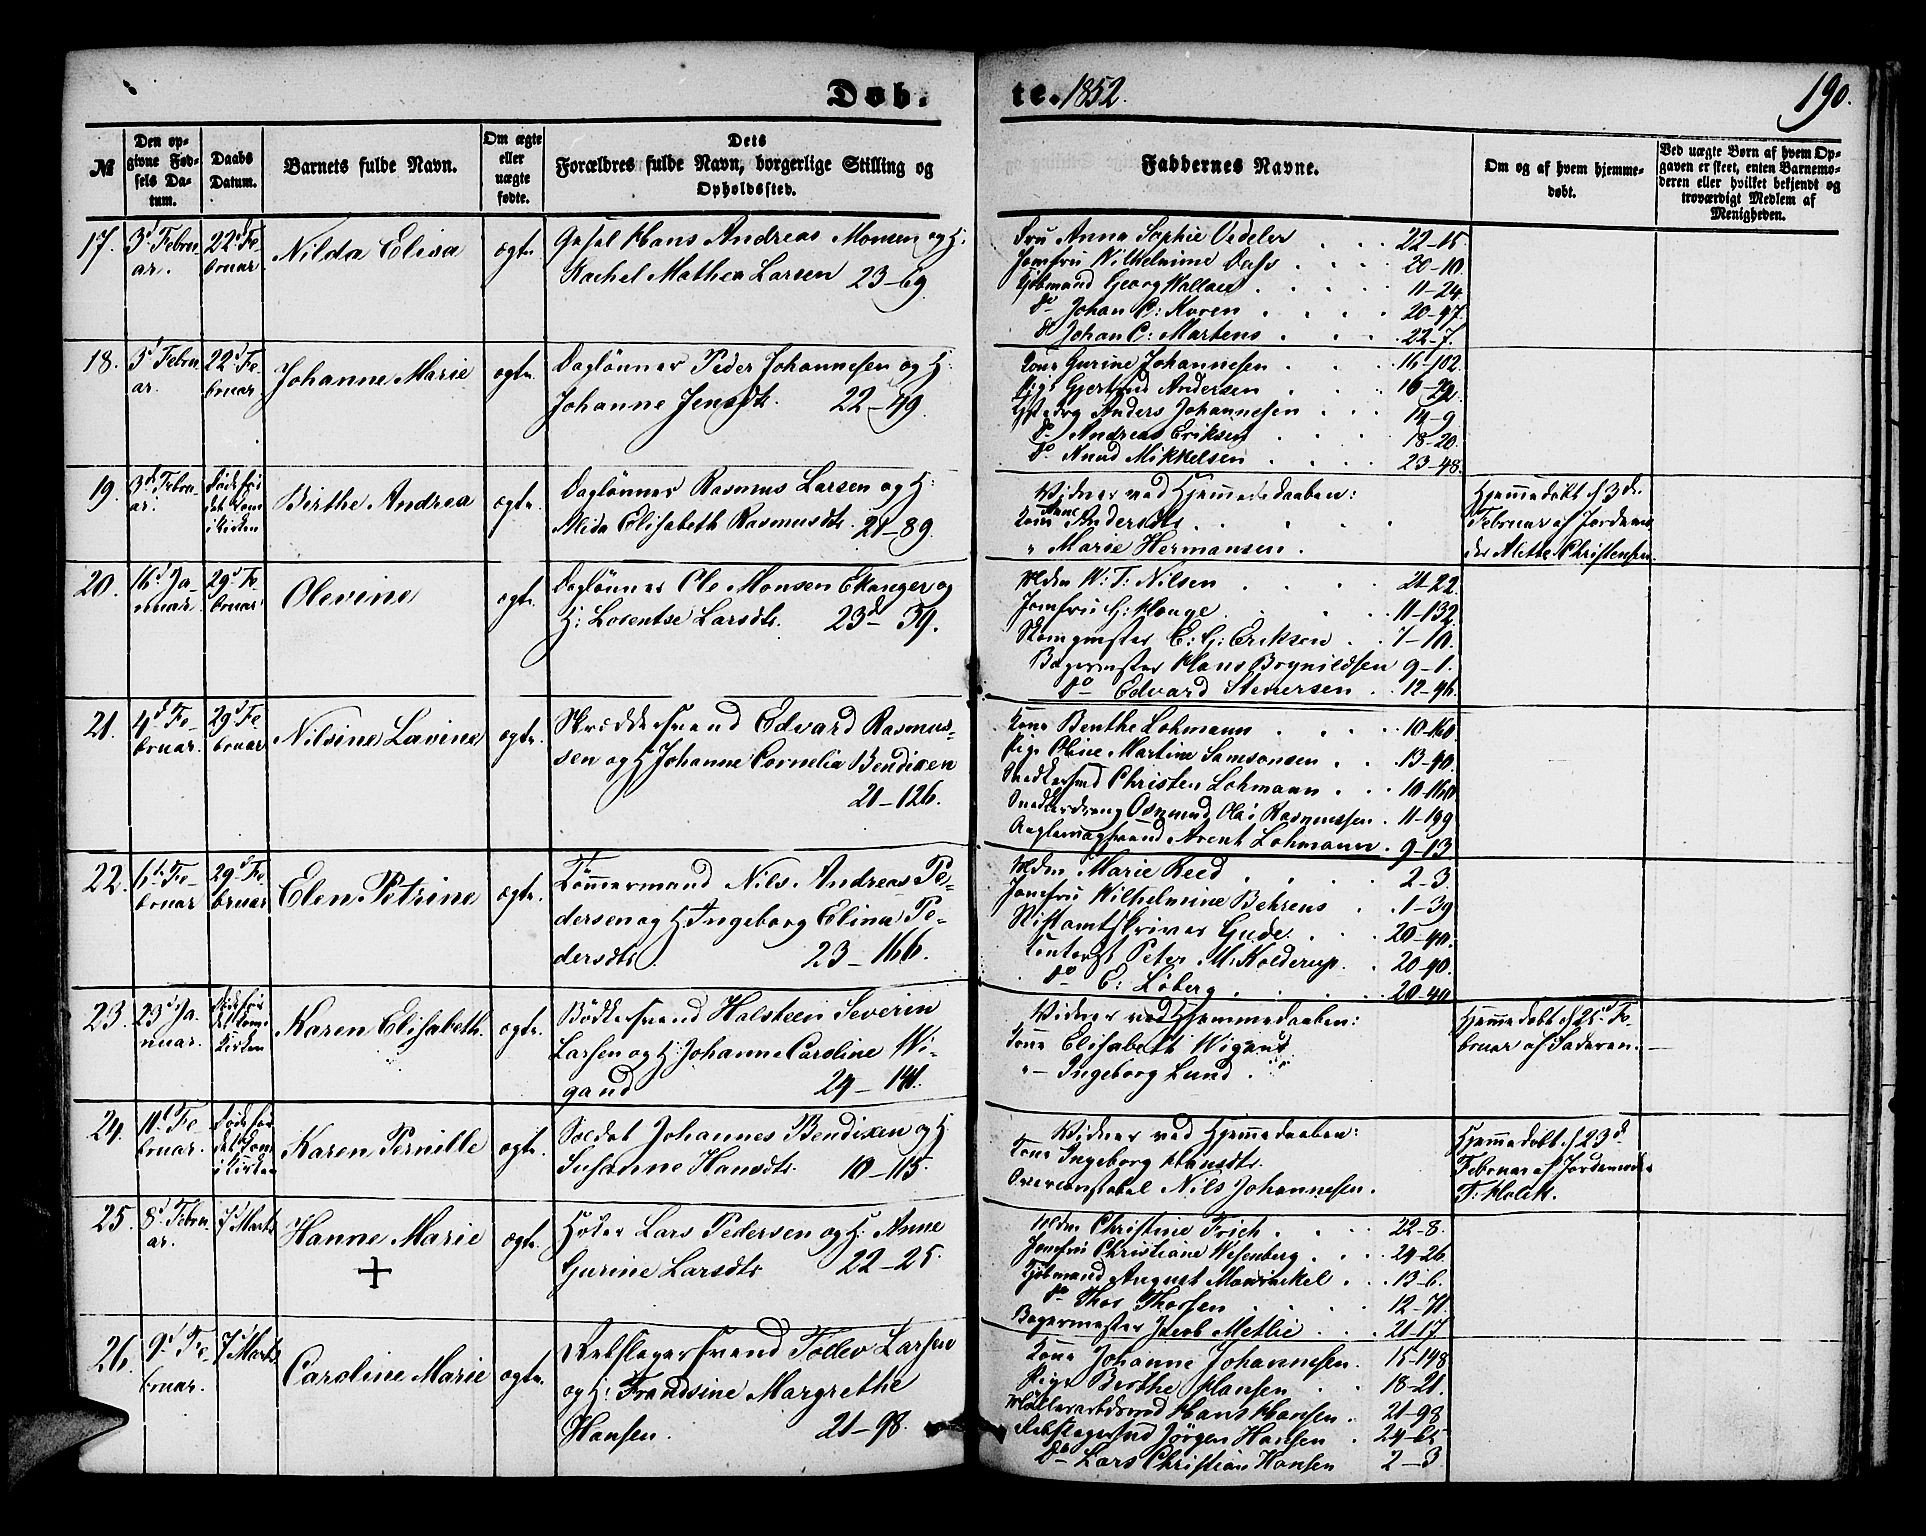 Døb.
te. 1852.
190.
№
Den op-
givne Fød-
sels Da-
tum.
Daabs
Datum.
Barnets fulde Navn.
Om ægte
eller
uægte
fødte.
Dets
Forældres fulde Navn, borgerlige Stilling og
Opholdssted.
Faddernes Navne.
Om og af hvem hjemme-
døbt.
Ved uægte Børn af hvem Op-
gaven er skeet, enten Barnemo-
deren eller hvilket bekjendt og
troværdigt Medlem af
Menigheden.
17.
3d Febru-
ar.
22d Fe-
bruar
Nilda Elisa
ægte.
Hans Andreas Monsen og H:
Rachel Mathea Larsen 23-69.
Fru Anna Sophie Vedeler 22-15
Jomfru Wilhelmine Dass 20-10
Kjøbmand Georg Wallace 11-24
do Johan C: Koren 20-97
do Johan C: Martens 22-7.
18.
3d Febru-
ar.
22d Fe-
bruar
Johanne Marie
ægte.
Daglønner Peder Johannesen og H:
Johanne Jensdtr. 22-49.
Kone Gurine Johannesen 16-102.
Pige Gjertrud Andersen 16-22.
Anders Johannesen 14-9
do Andreas Eriksen 18-20.
do Knud Mikkelsen 23-48.
19.
3d Febru-
ar.
Døde før
det kom
i Kirken
Birthe Andrea
ægte.
Daglønner Rasmus Larsen og H:
Elisabeth Rasmusdtr. 21-89.
Vidner ved Hjemmedaaben:
Kone Andersdtr.
" Marie Hermansen.
Hjemmedøbt d 3de
Februar af Jordemo-
der Alette Christensen.
20.
16d Ja-
nuar.
29d Fe-
bruar
Olevine
ægte.
Daglønner Ole Monsen Ekanger og
H: Lorentse Larsdtr. 23d-39.
Mdm W: T: Nilsen 21-22.
Jomfru G: Hauge 11-132
E: G: Eriksen 7-10.
Bagermester Hans Brynildsen 9-1.
do Edvard Stenersen 12-96.
21.
4d Fe-
bruar.
29d Fe-
bruar
Nilsine Lavine
ægte.
Skræddersvend Edvard Rasmus-
sen og H: Johanne Cornelia Bendixen
21-126.
Kone Benthe Lohmann 10-160
Pige Oline Martine Samsonsen 13-90.
Snedkersvend Christen Lohmann 10-160
Snedkerdreng Osmund Olai Rasmussen 11-199
Arent Lohmann 9-13
22.
6d Fe-
bruar
29d Fe-
bruar
Elen Petrine
ægte.
Tømmermand Nils Andreas Pe-
dersen og H: Ingeborg Elina Pe-
dersdtr. 23-166.
Mdm Marie Reed 2-3.
Jomfru Wilhelmine Behrens 1-39
Stiftamtskriver Gude 20-40.
Contorist Peter M: Kolderup 20-40.
do E: Løberg 20-40
23.
23d Ja-
nuar.
Døde før
det kom i
Kirken
Karen Elisabeth.
ægte.
Bødkersvend Halsteen Severin
Larsen og H: Johanne Caroline Wi-
gand 24-141.
Vidner ved Hjemmedaaben:
Kone Elisabeth Wigand
"- Ingeborg Lund.
Hjemmedøbt d 25d Fe-
bruar af Faderen.
24.
11d Fe-
bruar.
Døde før
det kom
i Kirken
Karen Pernille
ægte.
Soldat Johannes Bendixen og H:
Susanne Hansdtr. 10-115.
Vidner ved Hjemmedaaben:
Kone Ingeborg Hansdtr.
Overconstabel Nils Johannesen.
Hjemmedøbt d 23d
Februar af Jordemoder
T: Holck.
25.
8d Febru-
ar.
7d Marts
Hanne Marie
+
ægte.
Lars Pedersen og H: Anne
Gurine Larsdtr. 22-25.
Mdm Christine Frich 22-8.
Jomfru Christiane Wesenberg 24-26
Kjøbmand August Mowinckel 13-6.
do Thor Thorsen 12-71.
Bagermester Jacob Metlie 21-17
26.
9d Fe-
bruar.
7d Marts
Caroline Marie
ægte.
Rebslagersvend Tollev Larsen
og H: Frandsine Margrethe
Hansen. 21-98.
Kone Johanne Johannesen 15-148
Pige Berthe Hansen 18-21.
Hans Hansen 21-98
Rebslagersvend Jørgen Hansen 24-65
do Lars Christian Hansen 2-3